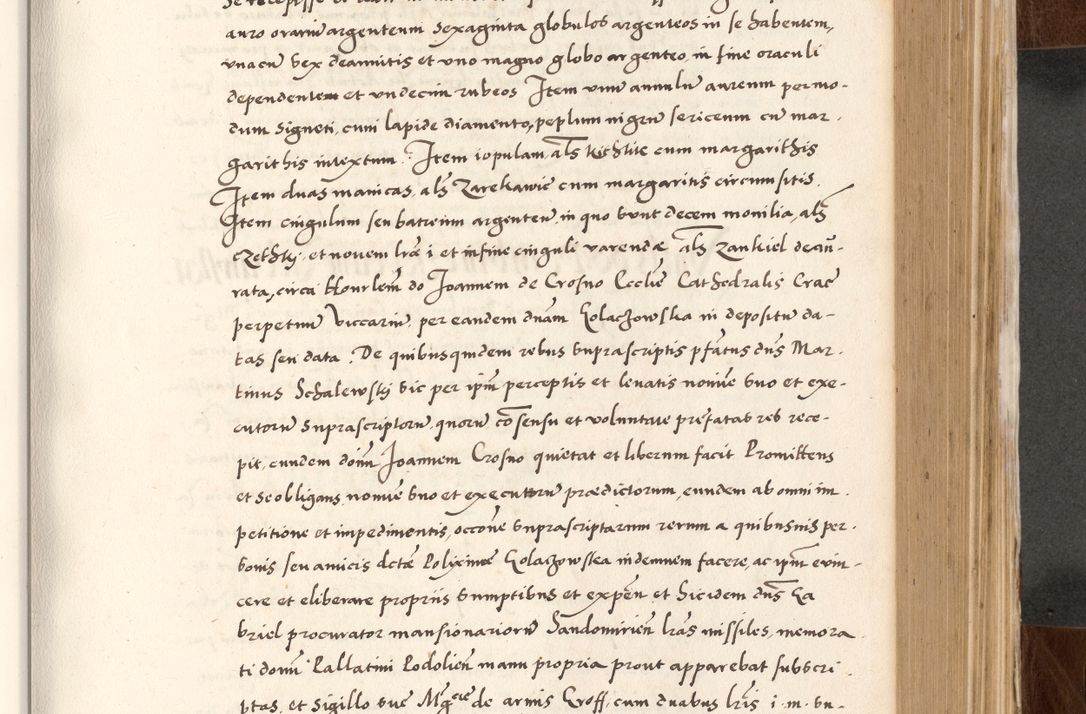 auro orariū argenteum sexaginta globulos argenteos in se habentem,
unacū sex deamitis et uno magno globo argenteo in fine oraculi
dependentem et undecim rubeos Item unū annulū aureum per mo-
dum signeti, cum lapide diamento, peplum nigrū sericeum cū mar-
garithis intextum. Item iopulam, als̄ kithlik cum margarithis
Item duas manicas, als̄ Zarekawie cum margaritis circumsitis.
Item cingulum seu batreum argenteū, in quo sunt decem monilia, als̄
czethky, et novem lrāe i et in fine cinguli varendæ als̄ zankiel deaū-
rata, circa Honrlem̄ do Joannem de Crosno Ecclīe Cathedralis Crac̄
perpetuū viccariū, per eandem dnām Golaczowska in depositū da-
tas seu data. De quibusquidem rebus suprascriptis pfātus dnūs Mar-
tinus Schalewsky sic per ipm̄ perceptis et levatis nomīe suo et exe-
cutorū suprascriptorū, quorū cōsensu et voluntate prefatas res rece-
pit, eundem dom̄ Joannem Crosno quietat et liberum facit Promittens
et se obligans, nomīe suo et executorū prædictorum, eundem ab omni im-
petitione et impedimentis, occōne suprascriptarum rerum a quibusvis per-
sonis seu amicis dctæ Polixinæ Golaczowska indemnem facere, ac ipm̄ evin-
cere et eliberare propriis sumptibus et expen̄ et Ibidem dnūs Ga
briel procurator mansionariorū Sandomirien̄ lrās missiles, memora
ti dom̄ Pallatini Podolien̄ manu propria prout apparebat subscri
ptas, et sigillo suæ Mgcīe de armis Groff, cum duabus lrīs i. m. su-